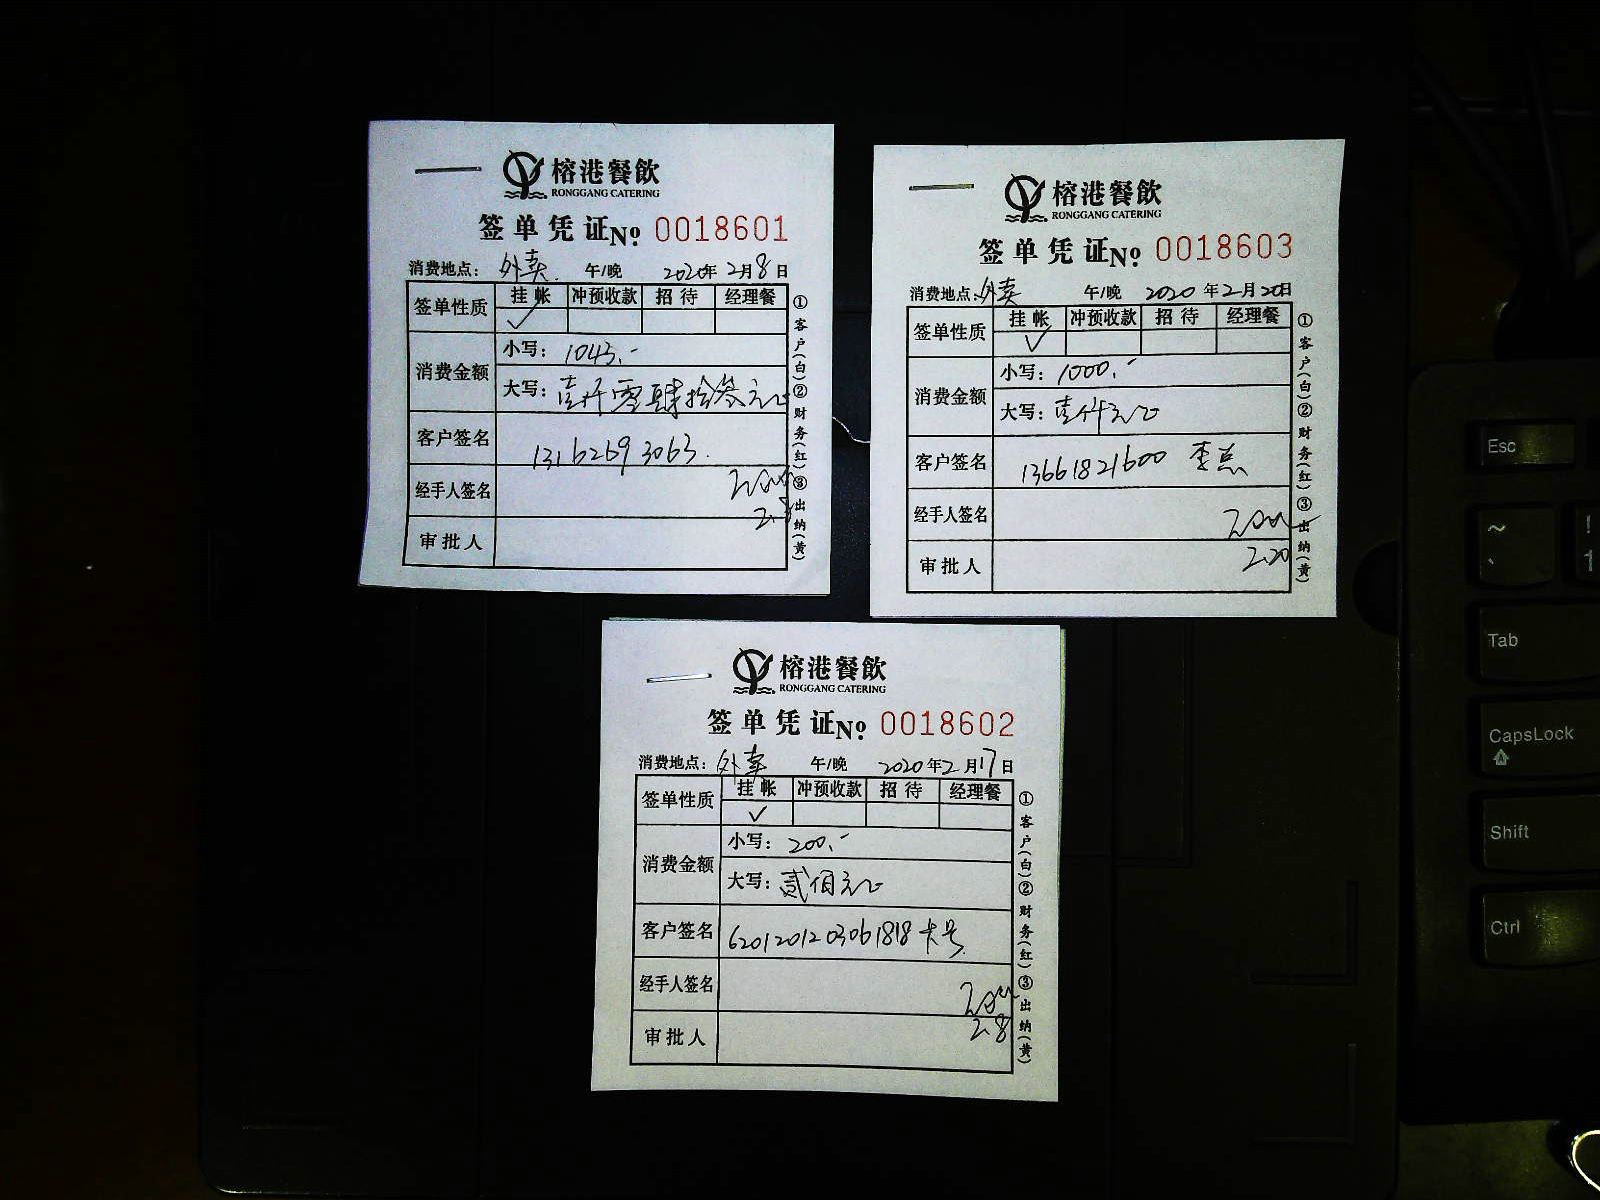 榕港餐飲
RONGGANG CATERING
签单凭证№ 0018601
消费地点：外卖 午/晚 2020年2月8日
签单性质 挂帐 冲预收款 招待 经理餐
✓
消费金额 小写：1043.-
大写：壹仟零肆拾叁元正
客户签名 13162693063.
经手人签名
2.8
审批人
①客户(白)②财务(红)③出纳(黄)
榕港餐飲
RONGGANG CATERING
签单凭证№ 0018603
消费地点：外卖 午/晚 2020年2月20日
签单性质 挂帐 冲预收款 招待 经理餐
✓
消费金额 小写：1000.-
大写：壹仟元正
客户签名 13661821600 李总
经手人签名
2.20
审批人
①客户(白)②财务(红)③出纳(黄)
榕港餐飲
RONGGANG CATERING
签单凭证№ 0018602
消费地点：外卖 午/晚 2020年2月17日
签单性质 挂帐 冲预收款 招待 经理餐
✓
消费金额 小写：200.-
大写：贰佰元正
客户签名 6201201203061818卡号
经手人签名
2.8
审批人
①客户(白)②财务(红)③出纳(黄)
Esc
~
`
!
1
Tab
CapsLock
Shift
Ctrl